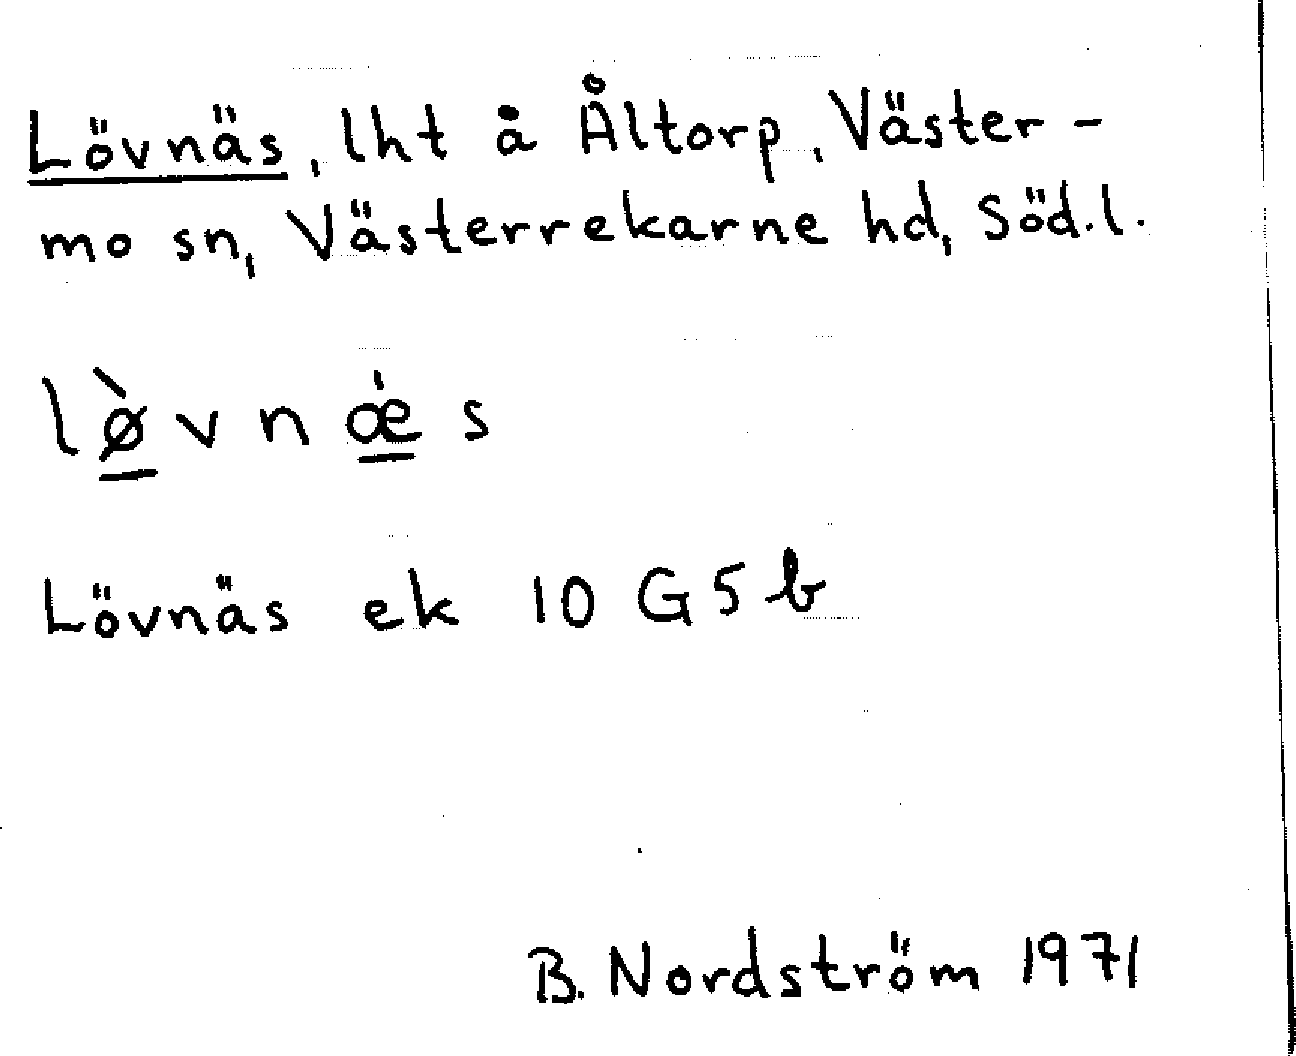 Lövnäs, lht å Åltorp, Väster-
mo sn, Västerrekarne hd, Söd.l.
lø̀vnǽs
Lövnäs ek 10 G 5 b
B. Nordström 1971